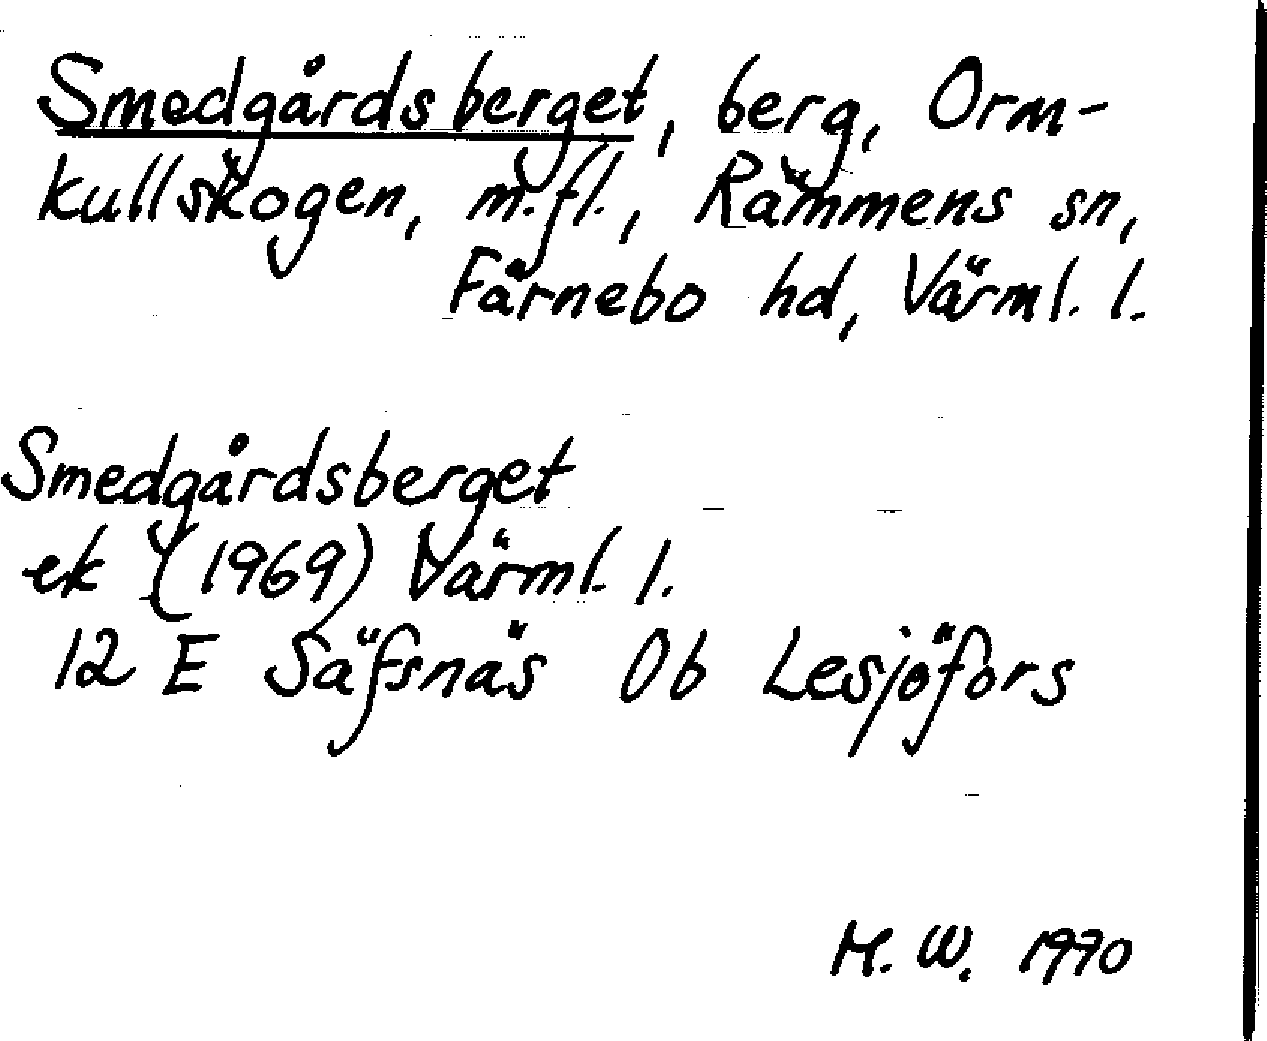 Smedgårdsberget, berg, Orm-
kullskogen, m.fl., Rämmens sn,
Färnebo hd, Värml. l.
Smedgårdsberget
ek (1969) Värml. l.
12 E Säfsnäs 0b Lesjöfors
M. W. 1970